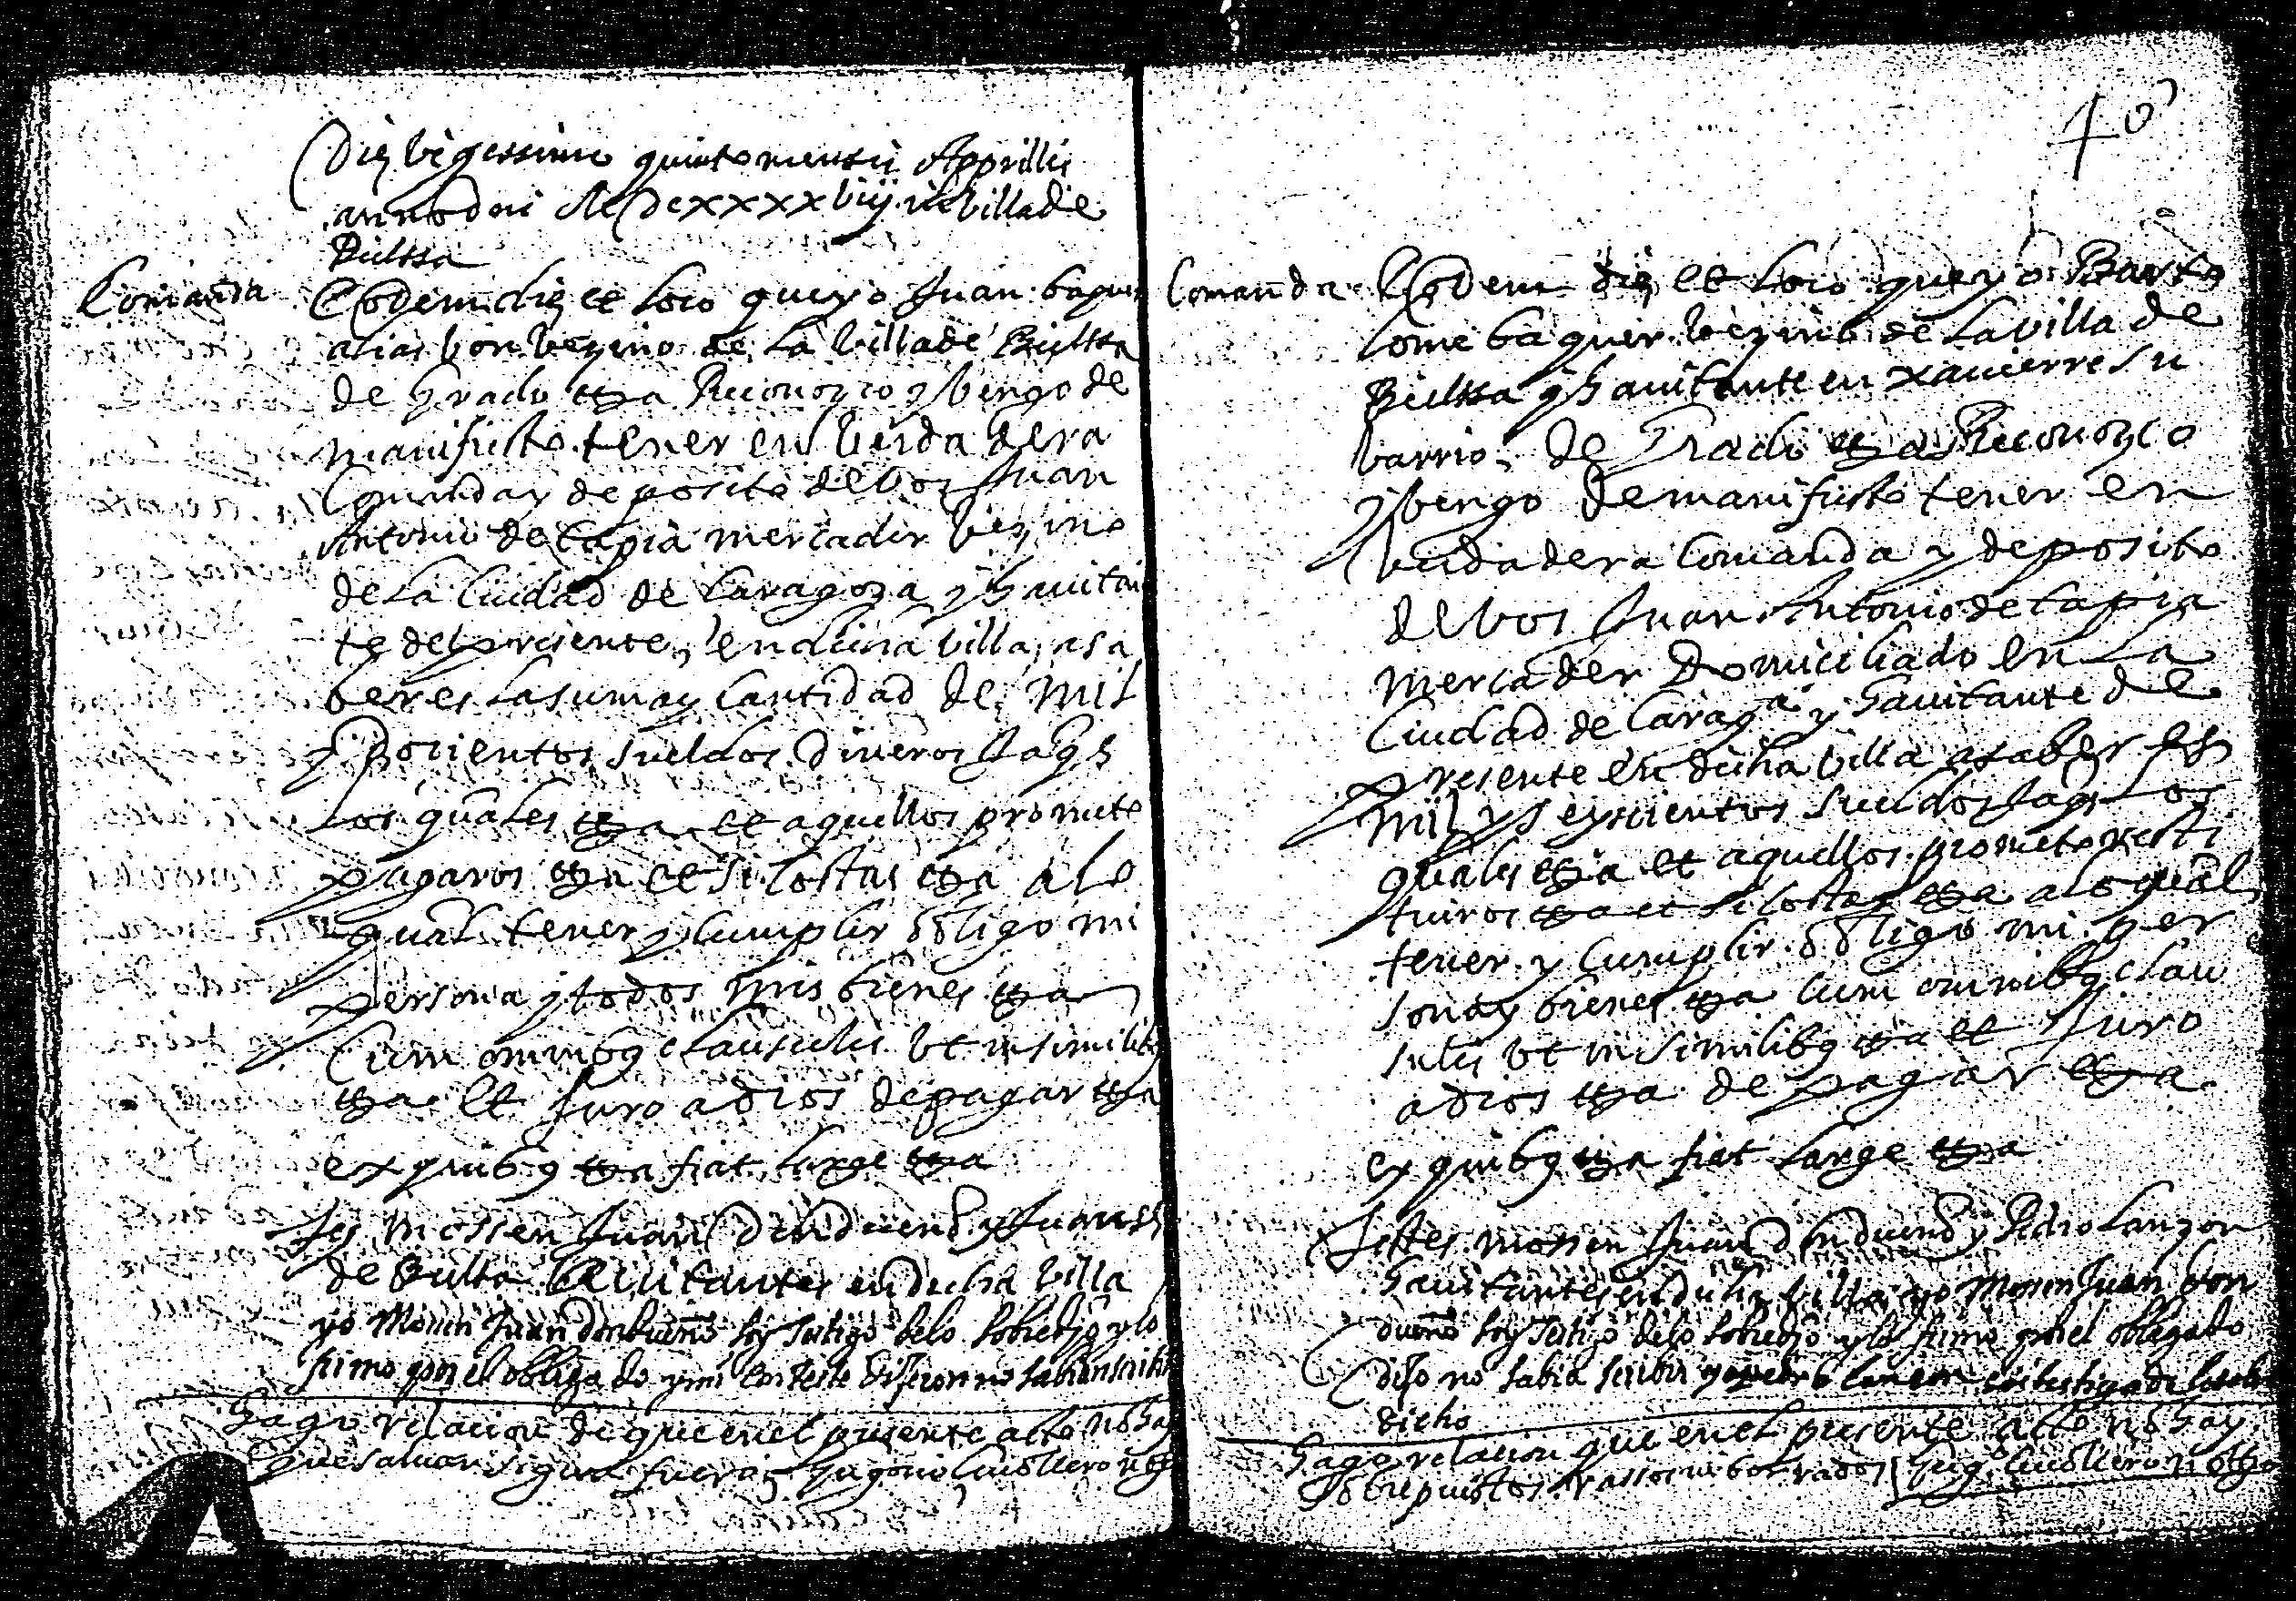 Die bigessimo quinto mensis Apprillis
anno dni M Dcxxxxbiij in billa de
Bielssa
Comanda
Eodem die et loco que yo Juan baquer
alias bon bezino de la billa de Bielssa
de grado etta Reconozco y bengo de
manifiesto tener en berdadera
Comanda y deposito de bos Juan
Antonio de tapia mercader bezino
de la Ciudad de Caragoza y habitan
te del presente en dicha billa a sa
ber es la suma y cantidad de mil
y docientos sueldos dineros Jaqs
los quales etta et aquellos prometo
pagaros etta et si costas etta a lo
qual tener y cumplir obligo mi
persona y todos mis bienes etta
Cum omnibq clausulis bt in similibq
etta et Juro a dios de pagar etta
ex quibq etta fiat large etta
Tes mossen Juan
de Bielsa habitantes en dicha billa
yo Mosen Juan soy testigo de lo sobredjo y lo
firmo por el obligado y mi conteste que dixeron no sabian scribir
Hago relacion de que en el presente acto no hay
que salvar segun fuero
40
Comanda
Eodem die et loco que yo Barto
lome baquer bezino de la billa de
Bielssa y havitante en xavierre su
barrio de Grado etta Reconozco
y bengo de manifiesto tener en
berdadera comanda y deposito
de bos Juan Antonio de tapia
mercader Domiciliado en la
Ciudad de Caragª y havitante de
presente en dicha billa a saber es
mil y seyscientos sueldos Jaqs los
quales etta et aquellos prometo resti
tuiros etta et si costas etta a lo qual
tener y cumplir obligo mi per
sona y bienes etta cum omnibq clau
sulis bt in similibq etta et Juro
a dios etta de pagar etta
ex quibq etta fiat large etta
Testes mossen Juan y Pedro Lanzon
havitantes en dicha billa yo Mosen Juan
soy testigo de lo sobredjo y lo firmo por el obligado
dijo no sabia scribir y yo pedro lanzon soi testigo de lo sobre
dicho
Hago relacion que en el presente acto no hay
sobrepuestos rassos ni borrados